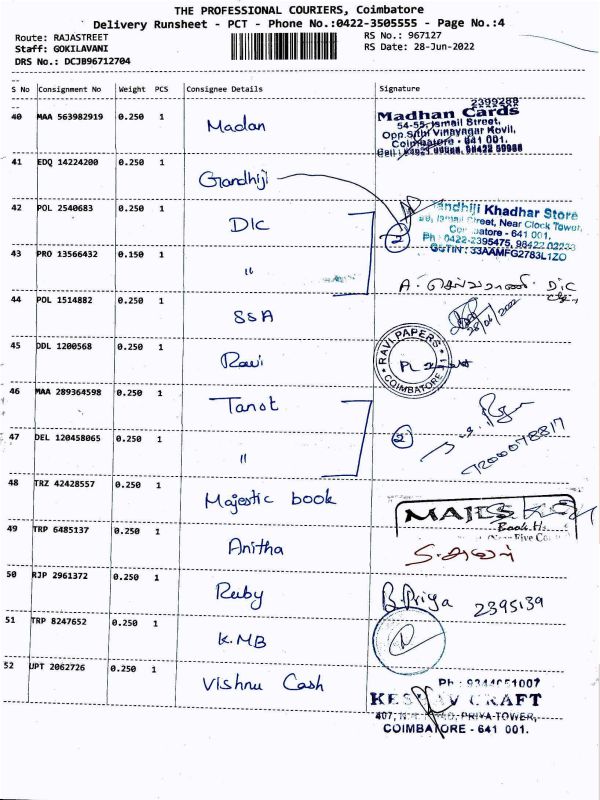 THE PROFESSIONAL COURIERS, Coimbatore
Delivery Runsheet - PCT - Phone No.:0422-3505555 - Page No.:4
Route: RAJASTREET RS No.: 967127
Staff: GOKILAVANI RS Date: 28-Jun-2022
DRS No.: DCJB96712704
S No Consignment No Weight PCS Consignee Details Signature
40 MAA 563982919 0.250 1 Madan
2399289
Madhan Cards
54-55, Ismail Street,
Opp.Sithi Vinaynagar Kovil,
Coimbatore - 641 001.
41 EDQ 14224200 0.250 1 Gandhiji
42 POL 2540683 0.250 1 DIC
2
Gandhiji Khadhar Store
Ismail Street, Near Clock Tower,
Coimbatore - 641 001.
Ph : 0422-2395475, 98422 02233
GSTIN : 33AAMFG2783L1ZO
43 PRO 13566432 0.150 1 "
DIC
44 POL 1514882 0.250 1 SSA
45 DDL 1200568 0.250 1 Ravi
RAVI PAPERS
COIMBATORE
46 MAA 289364598 0.250 1 Tanot
47 DEL 120458065 0.250 1 "
2
48 TRZ 42428557 0.250 1 Majestic book
49 TRP 6485137 0.250 1 Anitha
50 RJP 2961372 0.250 1 Ruby B.Priya 2395139
51 TRP 8247652 0.250 1 K.MB
52 UPT 2062726 0.250 1 Vishnu Cash
CRAFT
PRIYA TOWER,
COIMBATORE - 641 001.